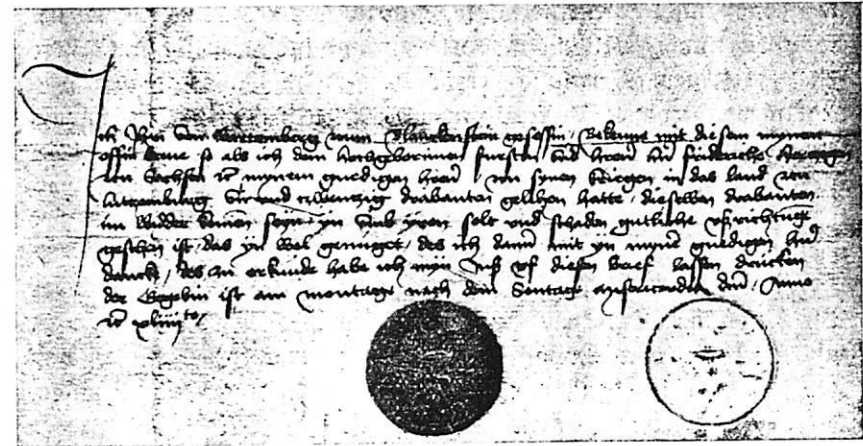 Ich Jan von Wartemberg von Blanckenstein gesessin / Bekenne mit diesem mynem
offin brive so als ich dem hochgebornnen fursten und hern hern frideriche herczogen
von Sachsen etc mynem gnedigen hern von synen kriegen in das land von
Luczemburg vir und czwenzig drabanten gelihen hatte / dieselben drabanten
im widder komen seyn yn vmb yren solt vnd schaden gutliche vßrichtunge
gescheen ist / das yn wol genuget / des ich dann mit yn myns gnedigen hern
dancke / des zu orkunde habe ich myn vf diesen brief lassen drucken
der Gegebin ist am montage nach dem Sontage misericordia dni / Anno
etc xliiii to /